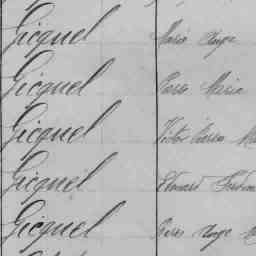 Gicquel Marie Ange
Gicquel Pierre Marie
Gicquel Victor Pierre
Gicquel Edouard
Gicquel Pierre Ange